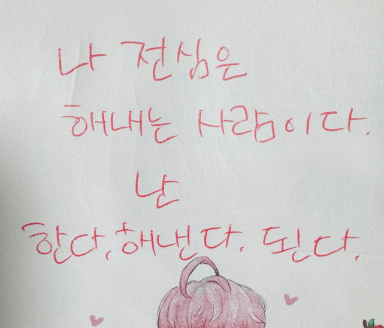 나 전심은
해내는 사람이다.
난
한다. 해낸다. 된다.